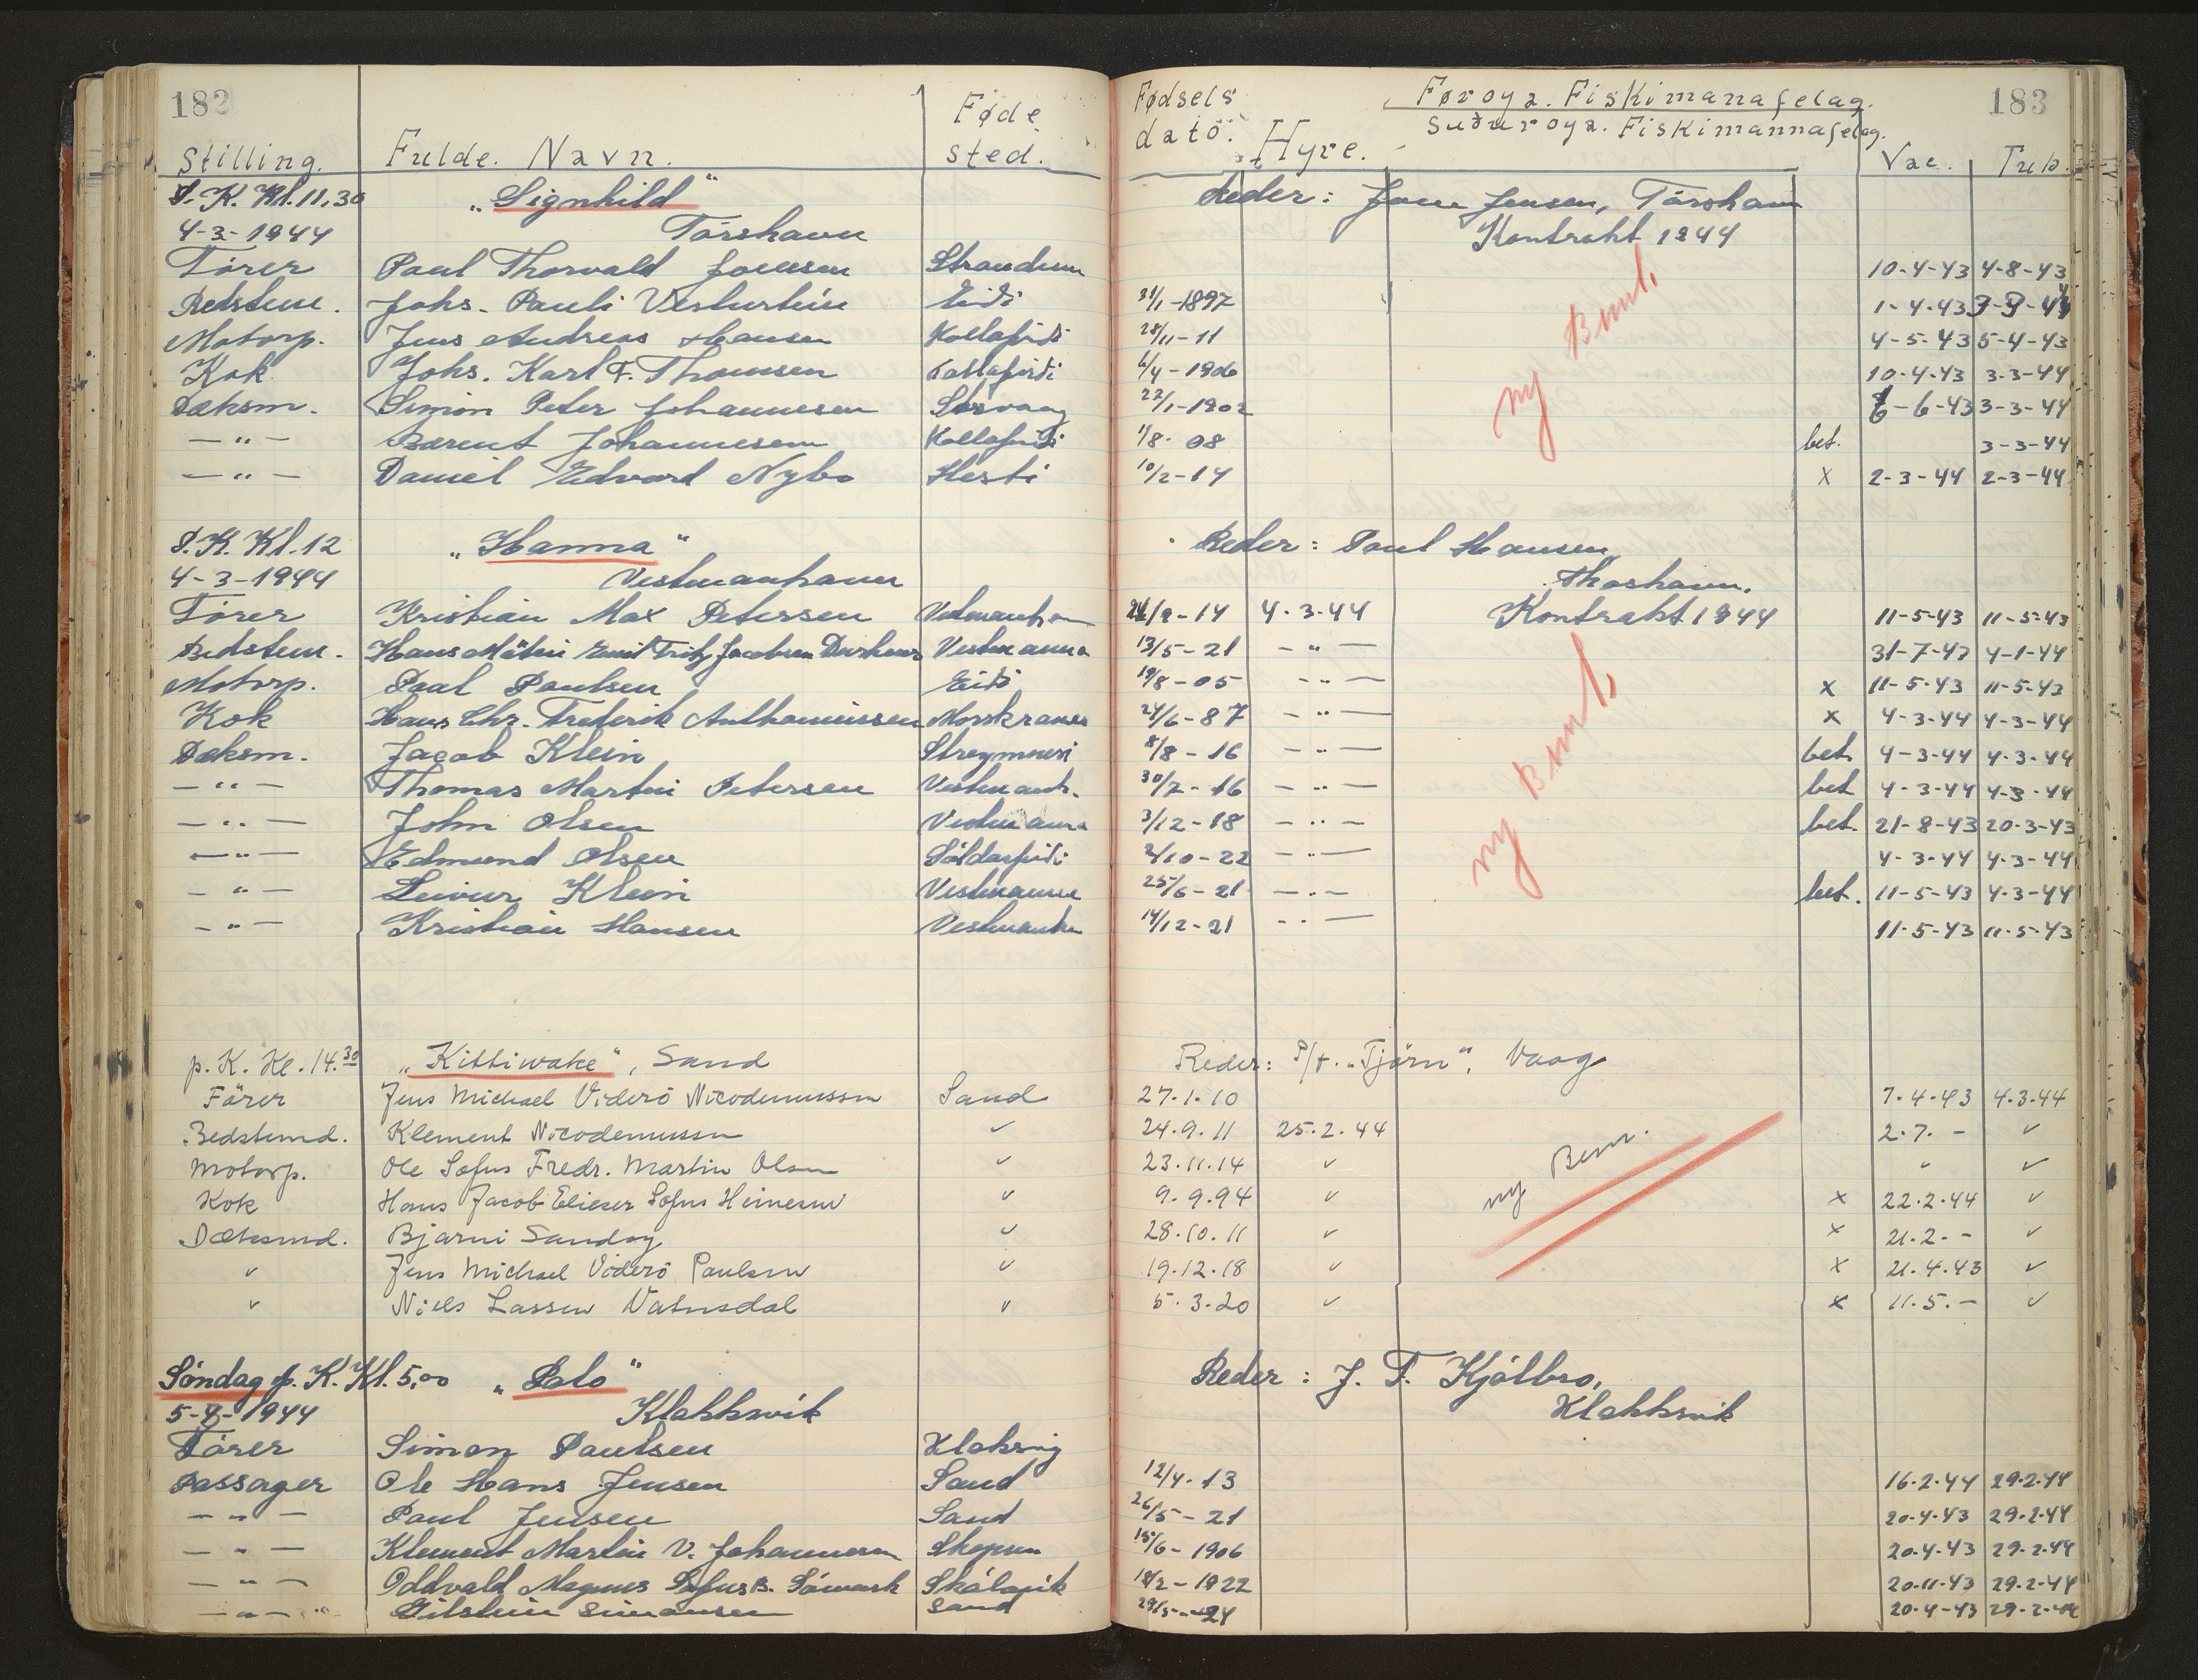 182
Føroya. Fiskimanafelag.
183
Suðuroya. Fiskimannafelag.
Stilling. Fulde. Navn. Føde sted. Fødsels dato. Hyre. Vac. Tub.
P. K. Kl. 11,30 „Signhild“ Reder: Jensen, Tórshavn
4-3-1944 Tórshavn Kontrakt 1944
Förer Poul Thorvald Joensen Strendum 10-4-43 4-8-43
Bedstem. Johs. Pauli Vesturtún Eiði 31/1-1897 1-4-43
Motorp. Jens Andreas Hansen Kollafirði 28/11-11 4-5-43 5-4-43
Kok Johs. Karl F. Thomsen Kollafirði 6/4-1906 10-4-43 3-3-44
Dæksm. Simon Peter Johannesen Sörvaag 22/1-1902 6-6-43 3-3-44
—"— Berent Johannesen Kollafirði 1/8-08 bet. 3-3-44
—"— Daniel Edvard Nybo Hesti 10/2-14 X 2-3-44 2-3-44
ny Bml.
P. K. Kl. 12 „Hanna“ Reder: Poul Hansen
4-3-1944 Vestmanhavn Thorshavn.
Förer Kristian Max Petersen Vestmanhavn 24/9-14 4-3-44 Kontrakt 1944 11-5-43 11-5-43
Bedstem. Hans Emil Fritz Jacobsen Vestmanna 13/5-21 —"— 31-7-42 4-1-44
Motorp. Poul Poulsen Eiði 19/8-05 —"— x 11-5-43 11-5-43
Kok Hans Chr. Frederik Anthoniussen Norskranes 24/6-87 —"— x 4-3-44 4-3-44
Dæksm. Jacob Klein Streymnesi 8/8-16 —"— bet. 4-3-44 4-3-44
—"— Thomas Martin Petersen Vestmanh. 30/7-16 —"— bet 4-3-44 4-3-44
—"— John Olsen Vestmanna 3/12-18 —"— bet. 21-8-43 20-3-43
—"— Edmund Olsen Söldarfirði 2/10-22 —"— 4-3-44 4-3-44
—"— Leivur Klein Vestmanna 25/6-21 —"— bet. 11-5-43 4-3-44
—"— Kristian Hansen Vestmanh 14/12-21 —"— 11-5-43 11-5-43
ny Bml.
p. K. Kl. 14.30 „Kittiwake“, Sand Reder: P/f. „Tjörn“, Vaag
Förer Jens Michael Viderö Nicodemussen Sand 27.1.10 7.4.43 4.3.44
Bedstemd. Klement Nicodemussen ✓ 24.9.11 25.2.44 2.7.- ✓
Motorp. Ole Sofus Fredr. Martin Olsen ✓ 23.11.14 ✓ " ✓
Kok Hans Jacob Elieser Sofus Heinesen ✓ 9.9.94 ✓ x 22.2.44 ✓
Dæksmd. Bjarni Sandoy ✓ 28.10.11 ✓ x 21.2.- ✓
✓ Jens Michael Viderö Poulsen ✓ 19.12.18 ✓ x 21.4.43 ✓
✓ Niels Lassen Vatnsdal ✓ 5.3.20 ✓ x 11.5.- ✓
ny Bem.
Söndag p. K. Kl. 5,00 „Polo“ Reder: J. F. Kjölbro,
5-3-1944 Klakksvik Klakksvik
Förer Simon Poulsen Klaksvig
Passager Ole Hans Jensen Sand 12/4-13 16-2-44 29-2-44
—"— Poul Jensen Sand 26/5-21 20-4-43 29-2-44
—"— Klement Martin V. Johannesen Skopun 15/6-1906 20-4-43 29-2-44
—"— Oddvald Magnus Sofus B. Skálavik 18/2-1922 20-11-43 29-2-44
—"— Simonsen Sand 20-4-43 29-2-44